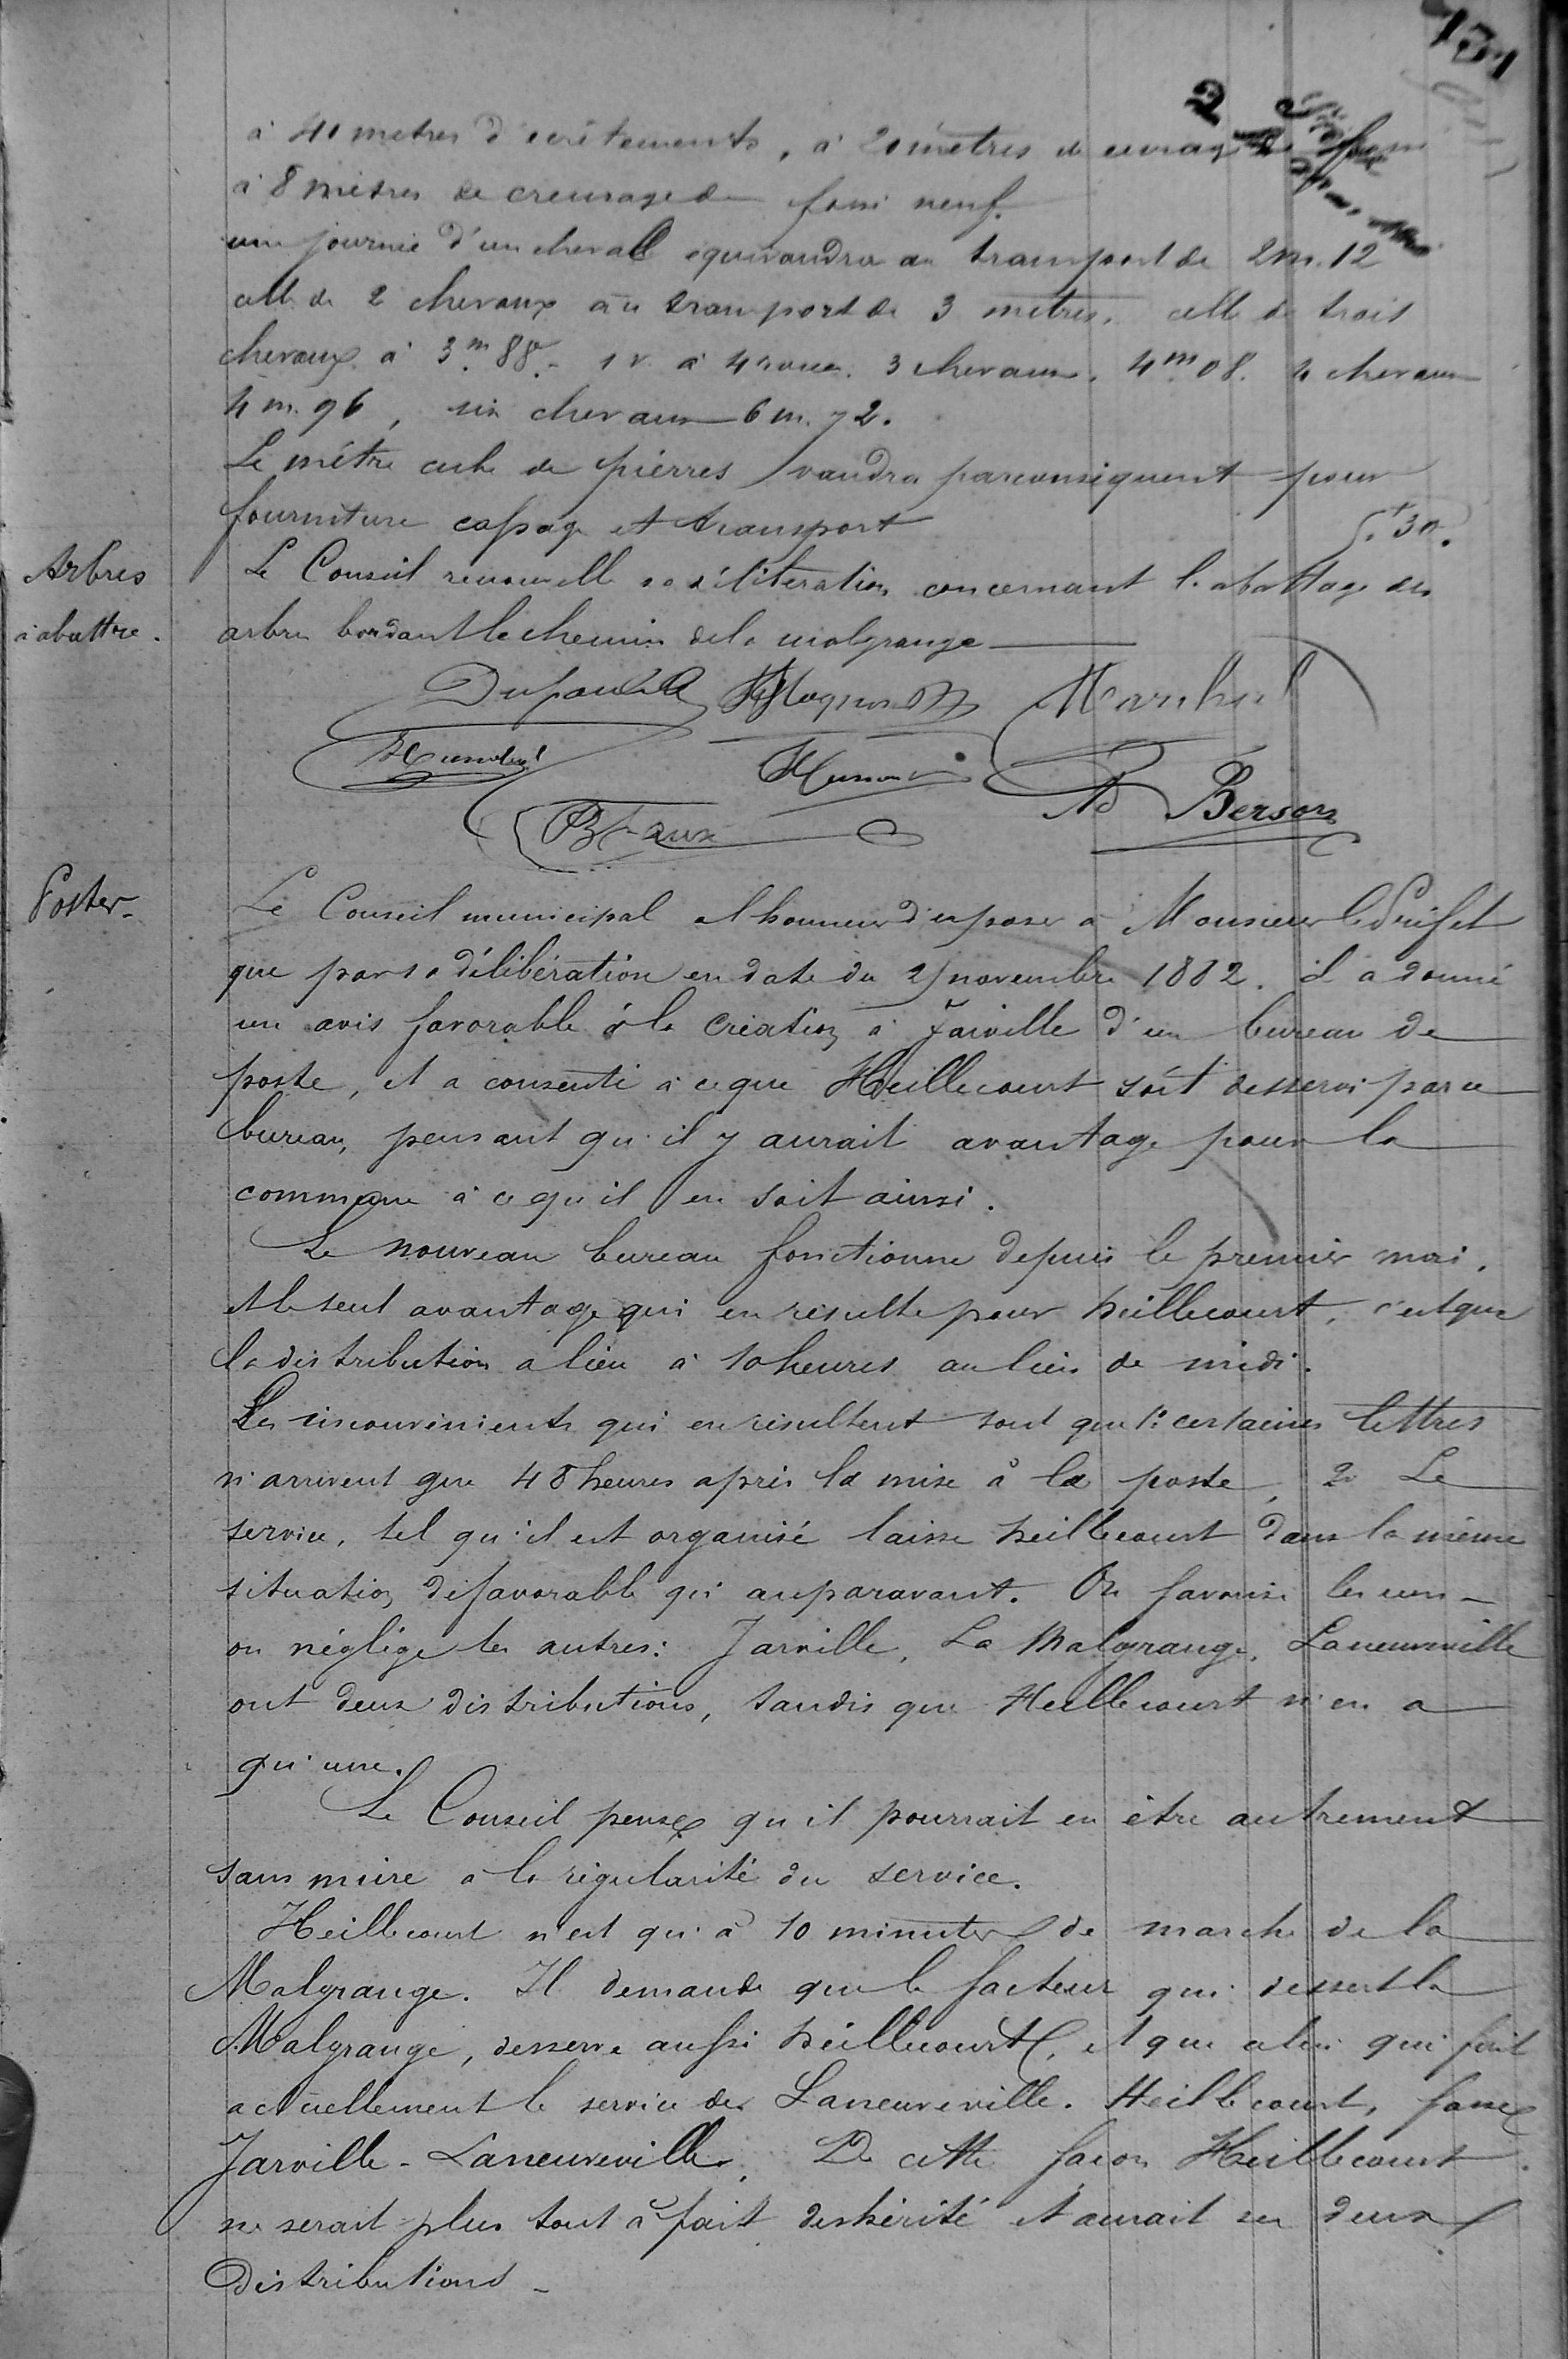 131
2
à 40 metres d'ecrêtements, à 20 mètres de curage de fossé
à 8 mètres de creusage de fossé neuf.
une journée d'un cheval équivaudra au transport de 2m.12
celle de 2 chevaux au transport de 3 mètres. celle de trois
chevaux à 3m88.- 1 v. à 4 roues. 3 chevaux. 4m08. 4 chevaux
4m.96, six chevaux 6m.72.
Le mètre cube de pierres vaudra par conséquent pour
fourniture cassage et transport 5f30.
Arbres
à abattre.
Le Conseil renouvelle sa délibération concernant l'abattage des
arbres bordant le chemin de la malgrange
Marchal
Ad Berson
Postes-
Le Conseil municipal a l'honneur d'exposer à Monsieur le Préfet
que par sa délibération en date du novembre 1882. il a donné
un avis favorable à la création à Jarville d'un bureau de
poste, et a consenti à ce que Heillecourt soit desservi par ce
bureau, pensant qu'il y aurait avantage pour la
commune à ce qu'il en soit ainsi.
Le nouveau bureau fonctionne depuis le premier mai,
et le seul avantage qui en résulte pour heillecourt, c'est que
la distribution a lieu à 10 heures au lieu de midi.
Les inconvénients qui en résultent sont que 1° certaines lettres
n'arrivent que 48 heures après la mise à la poste, 2° Le
service, tel qu'il est organisé laisse heillecourt dans la même
situation défavorable qu'auparavant. On favorise les uns -
on néglige les autres: Jarville, La Malgrange, Laneuveville
ont deux distributions, tandis que Heillecourt n'en a
qu'une.
Le Conseil pense qu'il pourrait en être autrement
sans nuire à la régularité du service.
Heillecourt n'est qu'à 10 minutes de marche de la
Malgrange. Il demande que le facteur qui dessert la
Malgrange, desserve aussi heillecourt, et que celui qui fait
actuellement le service de Laneuveville. Heillecourt, fasse
Jarville - Laneuveville. De cette façon Heillecourt
ne serait plus tout à fait deshérité et aurait ses deux
distributions -